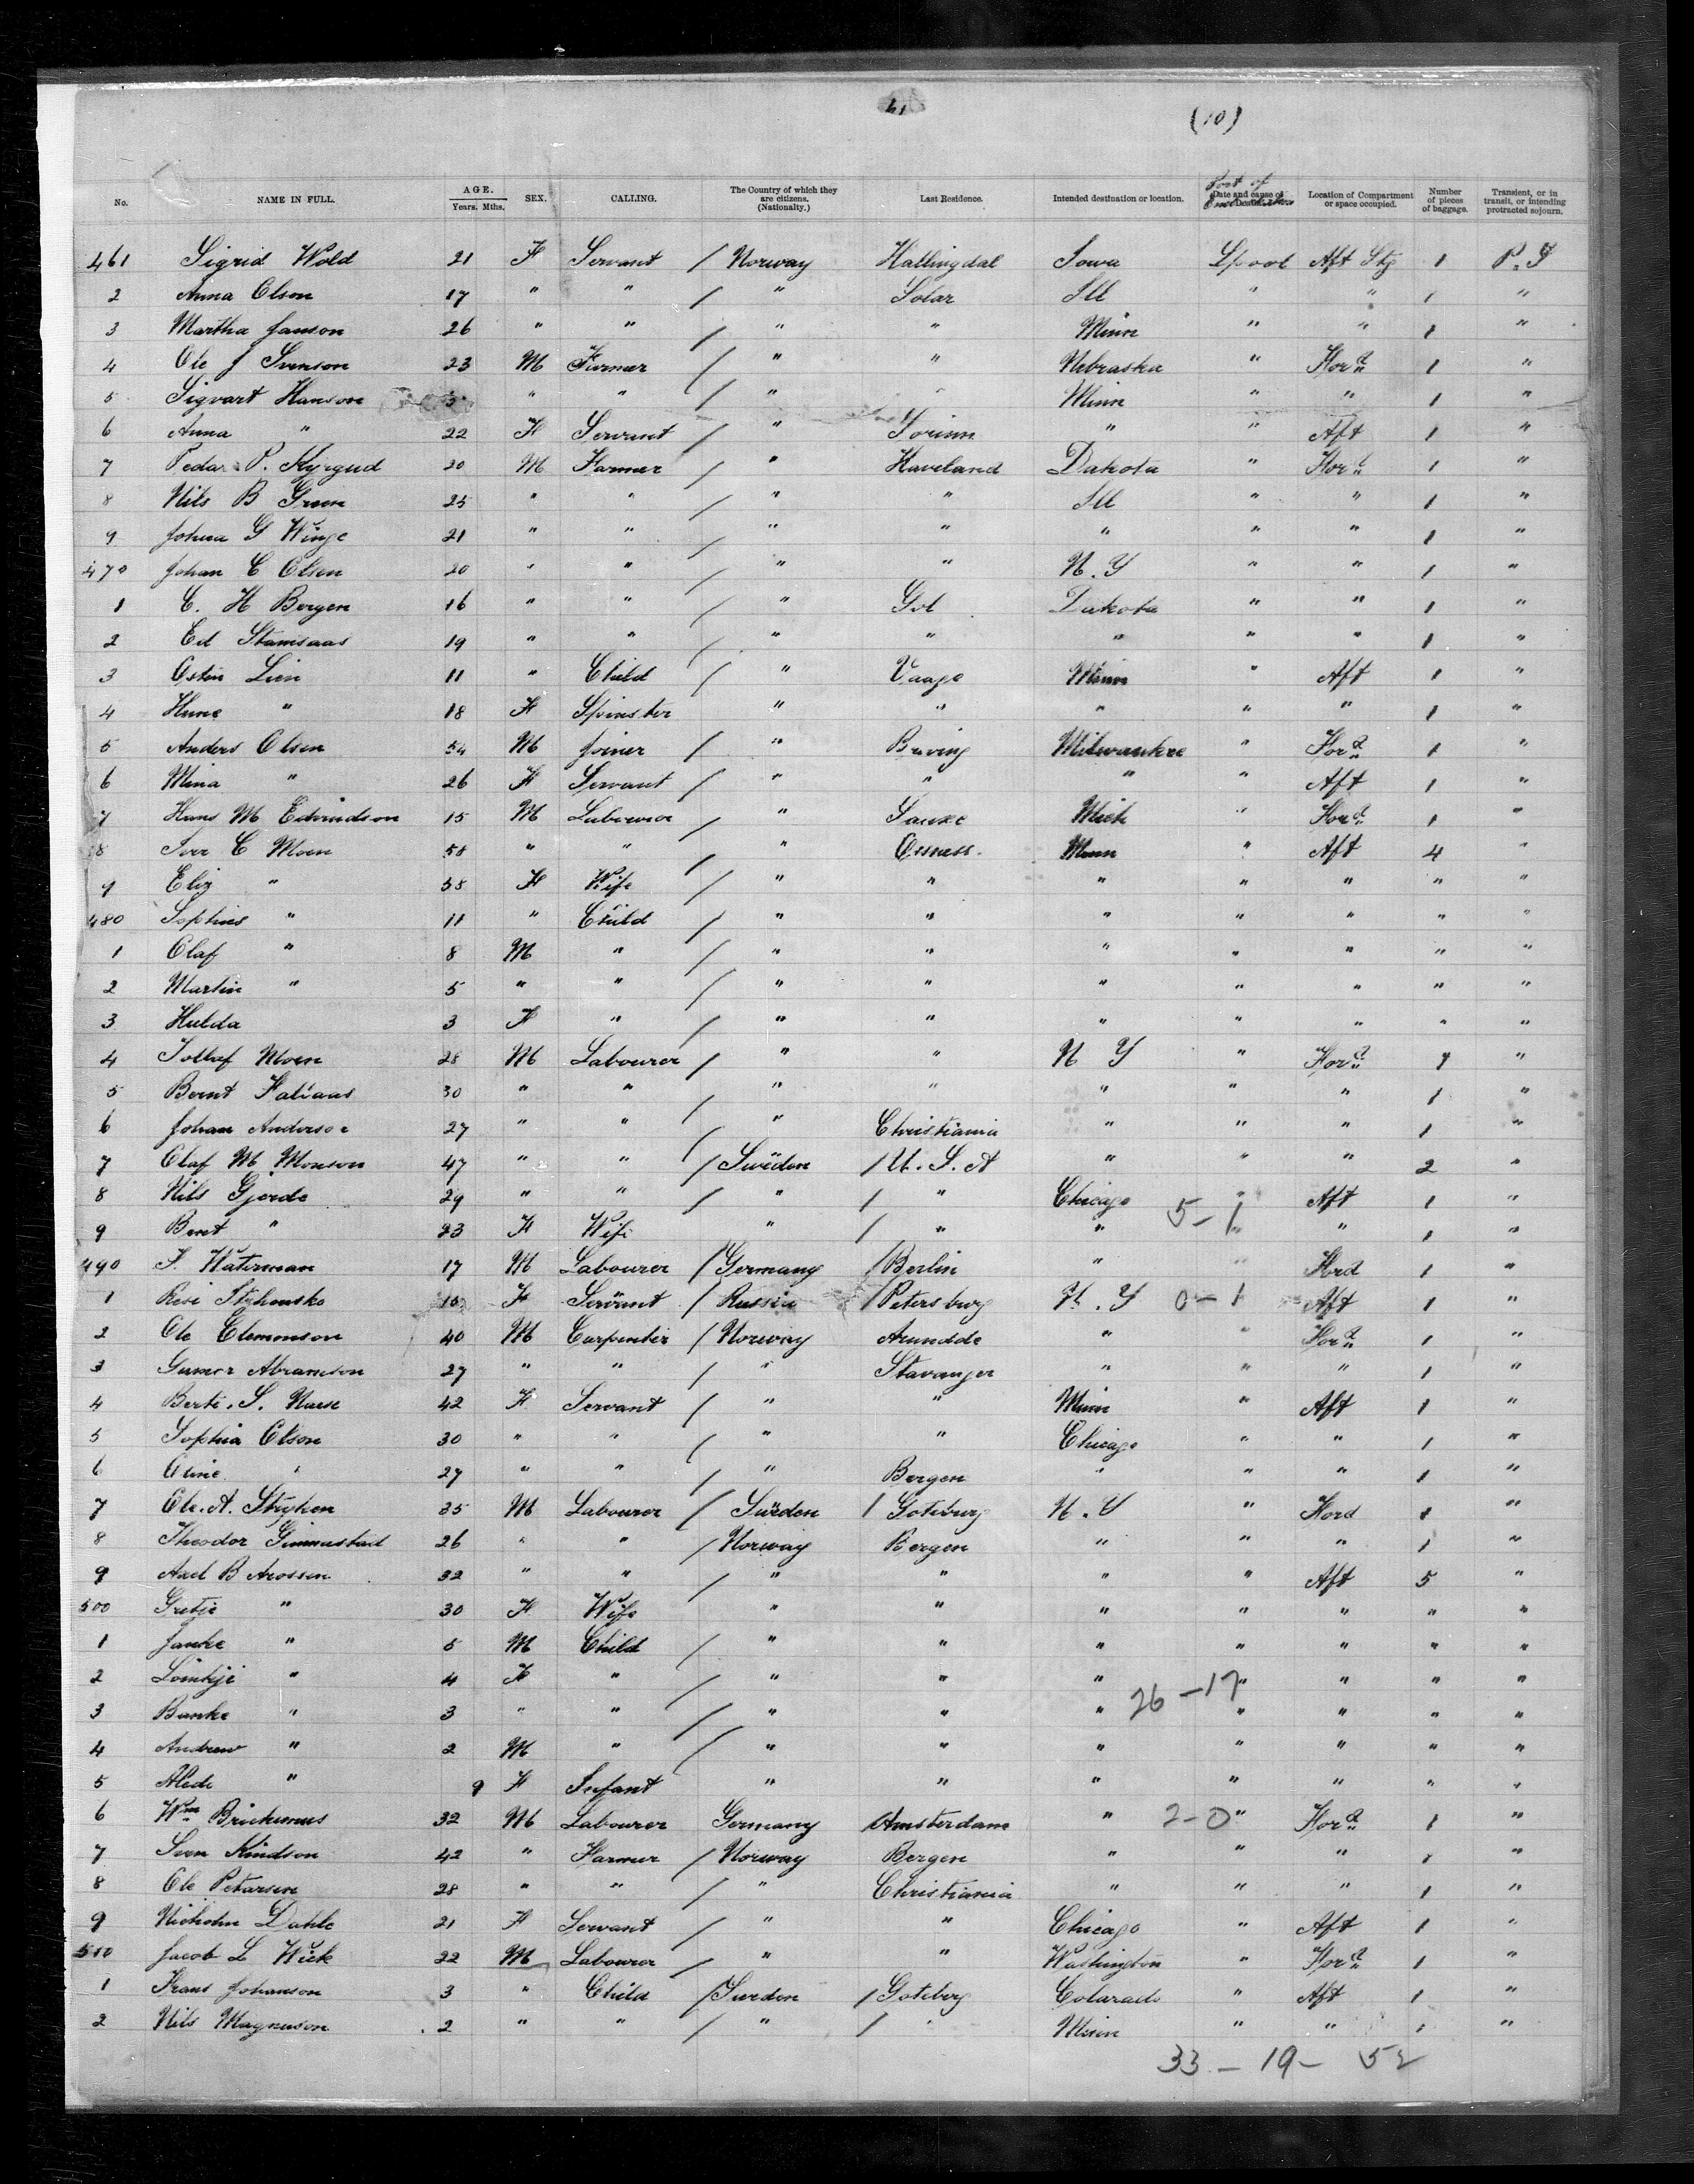 61
(10)
No. NAME IN FULL. AGE. Years. Mths. SEX. CALLING. The Country of which they are citizens. (Nationalty.) Last Residence. Intended destination or location. Port of Date and cause of Death. Location of Compartment or space occupied. Number of pieces of baggage. Transient, or in transit, or intending protracted sojourn.
461 Sigrid Wold 21 F Servant / Norway Hallingdal Iowa Lpool Aft Stg 1 P.S
2 Anna Olson 17 " " / " Solar Ill " " 1 "
3 Martha Janson 26 " " / " " Minn " " 1 "
4 Ole J Svenson 23 M Farmer / " " Nebraska " Ford 1 "
5 Sigvart Hanson " " / " " Minn " " 1 "
6 Anna " 22 F Servant / " " " Aft 1 "
7 Pedar P. 30 M Farmer / " Haveland Dakota " Ford 1 "
8 Nils B Green 25 " " / " " Ill " " 1 "
9 G Winge 21 " " / " " " " " 1 "
470 Johan C Olsen 20 " " / " " N.Y " " 1 "
1 C. H Bergen 16 " " / " Gol Dakota " " 1 "
2 Ed Stamsaas 19 " " / " " " " " 1 "
3 Osten Lien 11 " Child / " Vaage Minn " Aft 1 "
4 " 18 F Spinster " " " " " 1 "
5 Anders Olsen 54 M Joiner / " Milwaukee " Ford 1 "
6 Mina " 26 F Servant / " " " " Aft 1 "
7 Hans M 15 M Labourer / " Mich " Ford 1 "
8 Iver C Moen 58 " " / " Minn " Aft 4 "
9 Eliz " 58 F Wife / " " " " " " "
480 Sophies " 11 " Child / " " " " " " "
1 Olaf " 8 M " / " " " " " " "
2 Martin " 5 " " / " " " " " " "
3 Hulda 3 F " / " " " " " " "
4 Moen 28 M Labourer / " " N Y " Ford 1 "
5 Bernt 30 " " / " " " " " 1 "
6 Johan Anderson 27 " " / " Christiania " " " 1 "
7 Olaf M Monson 47 " " / Sweden / U.S.A " " " 2 "
8 Nils Gjerde 29 " " / " / " Chicago " Aft 1 "
5-1
9 Beret " 23 F Wife " / " " " " 1 "
490 F. Waterman 17 M Labourer / Germany / Berlin " " Ford 1 "
1 F Servant / Russia / Petersburg N.Y 0-1 Aft 1 "
2 Ole Clemonson 40 M Carpenter / Norway " " Ford 1 "
3 Abramson 27 " " / " Stavanger " " " 1 "
4 S. 42 F Servant / " " Minn " Aft 1 "
5 Sophia Olson 30 " " / " " Chicago " " 1 "
6 Oline " 27 " " / " Bergen " " " 1 "
7 Ole. A. 35 M Labourer / Sweden / Goteburg N.Y " Ford 1 "
8 Theodor 26 " " / Norway Bergen " " " 1 "
9 Axel B Arossen 32 " " / " " " " Aft 5 "
500 Gretje " 30 F Wife " " " " " " "
1 Janke " 5 M Child / " " " " " " "
2 " 4 F " / " " " " " " "
26-17
3 Banke " 3 " " / " " " " " " "
4 Andrew " 2 M " / " " " " " " "
5 " 9 F Infant " " " " " " "
6 Wm 32 M Labourer Germany Amsterdam " 2-0 " Ford 1 "
7 Sven Kindson 42 " Farmer / Norway Bergen " " " 1 "
8 Ole Petersen 28 " " / " Christiania " " " 1 "
9 Dahle 21 F Servant / " " Chicago " Aft 1 "
510 Jacob L Wick 22 M Labourer / " " Washington " Ford 1 "
1 Frans Johanson 3 " Child / Sweden / Goteberg Colarado " Aft 1 "
2 Nils Magnuson 2 " " / " / " Minn " " 1 "
33-19-52